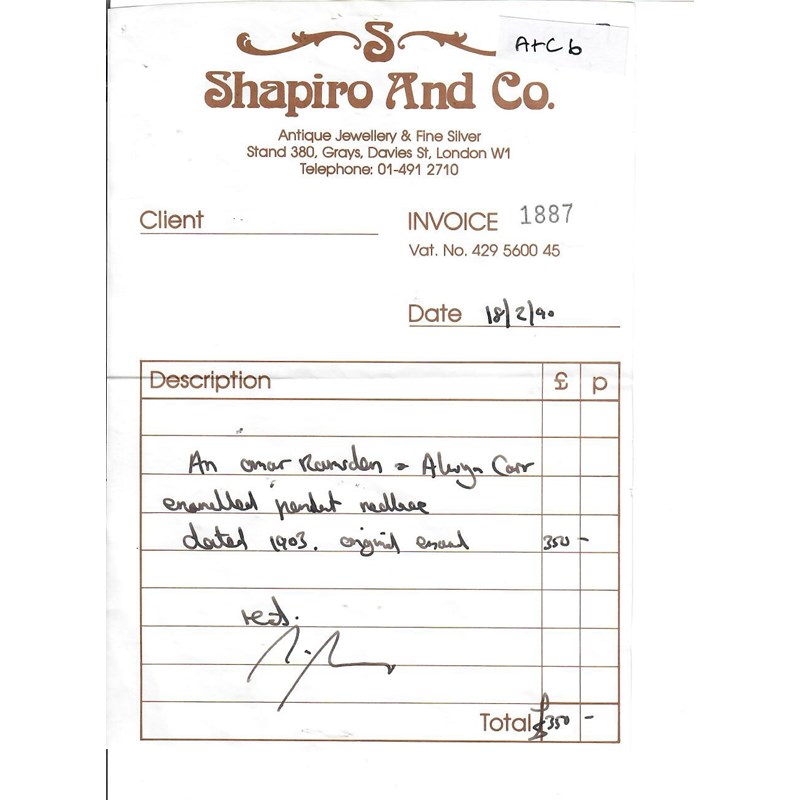 S
A+C b
Shapiro And Co.
Antique Jewellery & Fine Silver
Stand 380, Grays, Davies St, London W1
Telephone: 01-491 2710
Client
INVOICE 1887
Vat. No. 429 5600 45
Date 18/2/90
Description £ p
An omar Ramsden & Alwyn Carr
enamelled pendant necklace
dated 1903. original enamel 350 -
Total £350 -